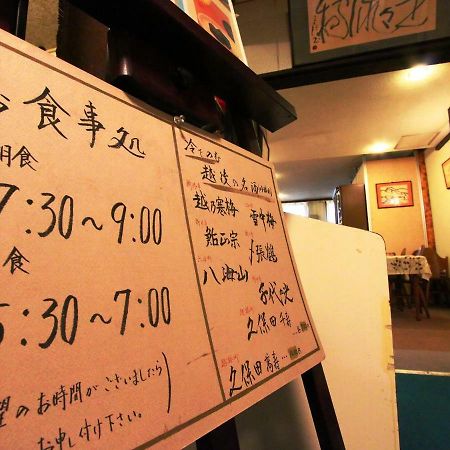 お食事処
朝食
7:30～9:00
食
5:30～7:00
望のお時間がございましたら)
お申し付け下さい。
今宵のお
越後の名酒
越乃寒梅
雪中梅
鮎正宗
〆張鶴
八海山
千代の光
久保田千寿
久保田萬寿…